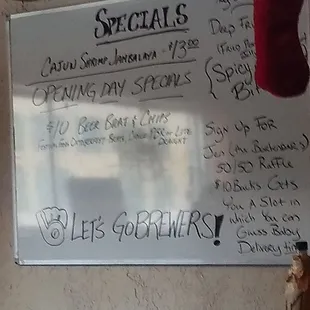 SPECIALS
CAJUN SHRIMP JAMBALAYA - $13.00
OPENING DAY SPECIALS
$10 BEER BRAT & CHIPS
LET'S GO BREWERS!
DEEP FRI
(SPICY
BIT
SIGN UP FOR
JEN (THE BARTENDER'S)
50/50 RAFFLE
$10 BUCKS GETS
YOU A SLOT IN
WHICH YOU CAN
GUESS BABY
DELIVERY TIM